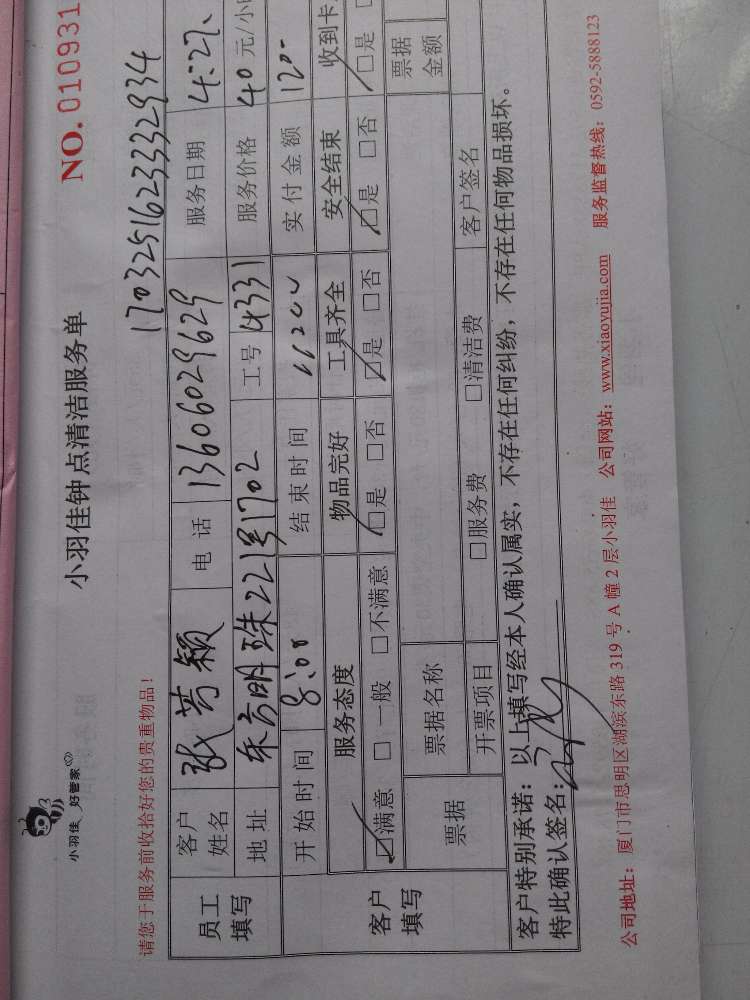 小羽佳 好管家
小羽佳钟点清洁服务单
NO.010931
请您于服务前收拾好您的贵重物品！
1703251623332934
员工填写
客户姓名 张芳颖 电话 13606029629 服务日期 4.27.
地址 221号1702 工号 4331 服务价格 40元/小
开始时间 8:00 结束时间 实付金额 120-
客户填写
服务态度 物品完好 工具齐全 安全结束 收到卡
☑满意 □一般 □不满意 ☑是 □否 ☑是 □否 ☑是 □否 ☑是
票据 票据名称 票据金额
开票项目 □服务费 □清洁费 客户签名
客户特别承诺：以上填写经本人确认属实，不存在任何纠纷，不存在任何物品损坏。
特此确认签名：
公司地址：厦门市思明区湖滨东路319号A幢2层小羽佳 公司网站：www.xiaoyujia.com 服务监督热线：0592-5888123